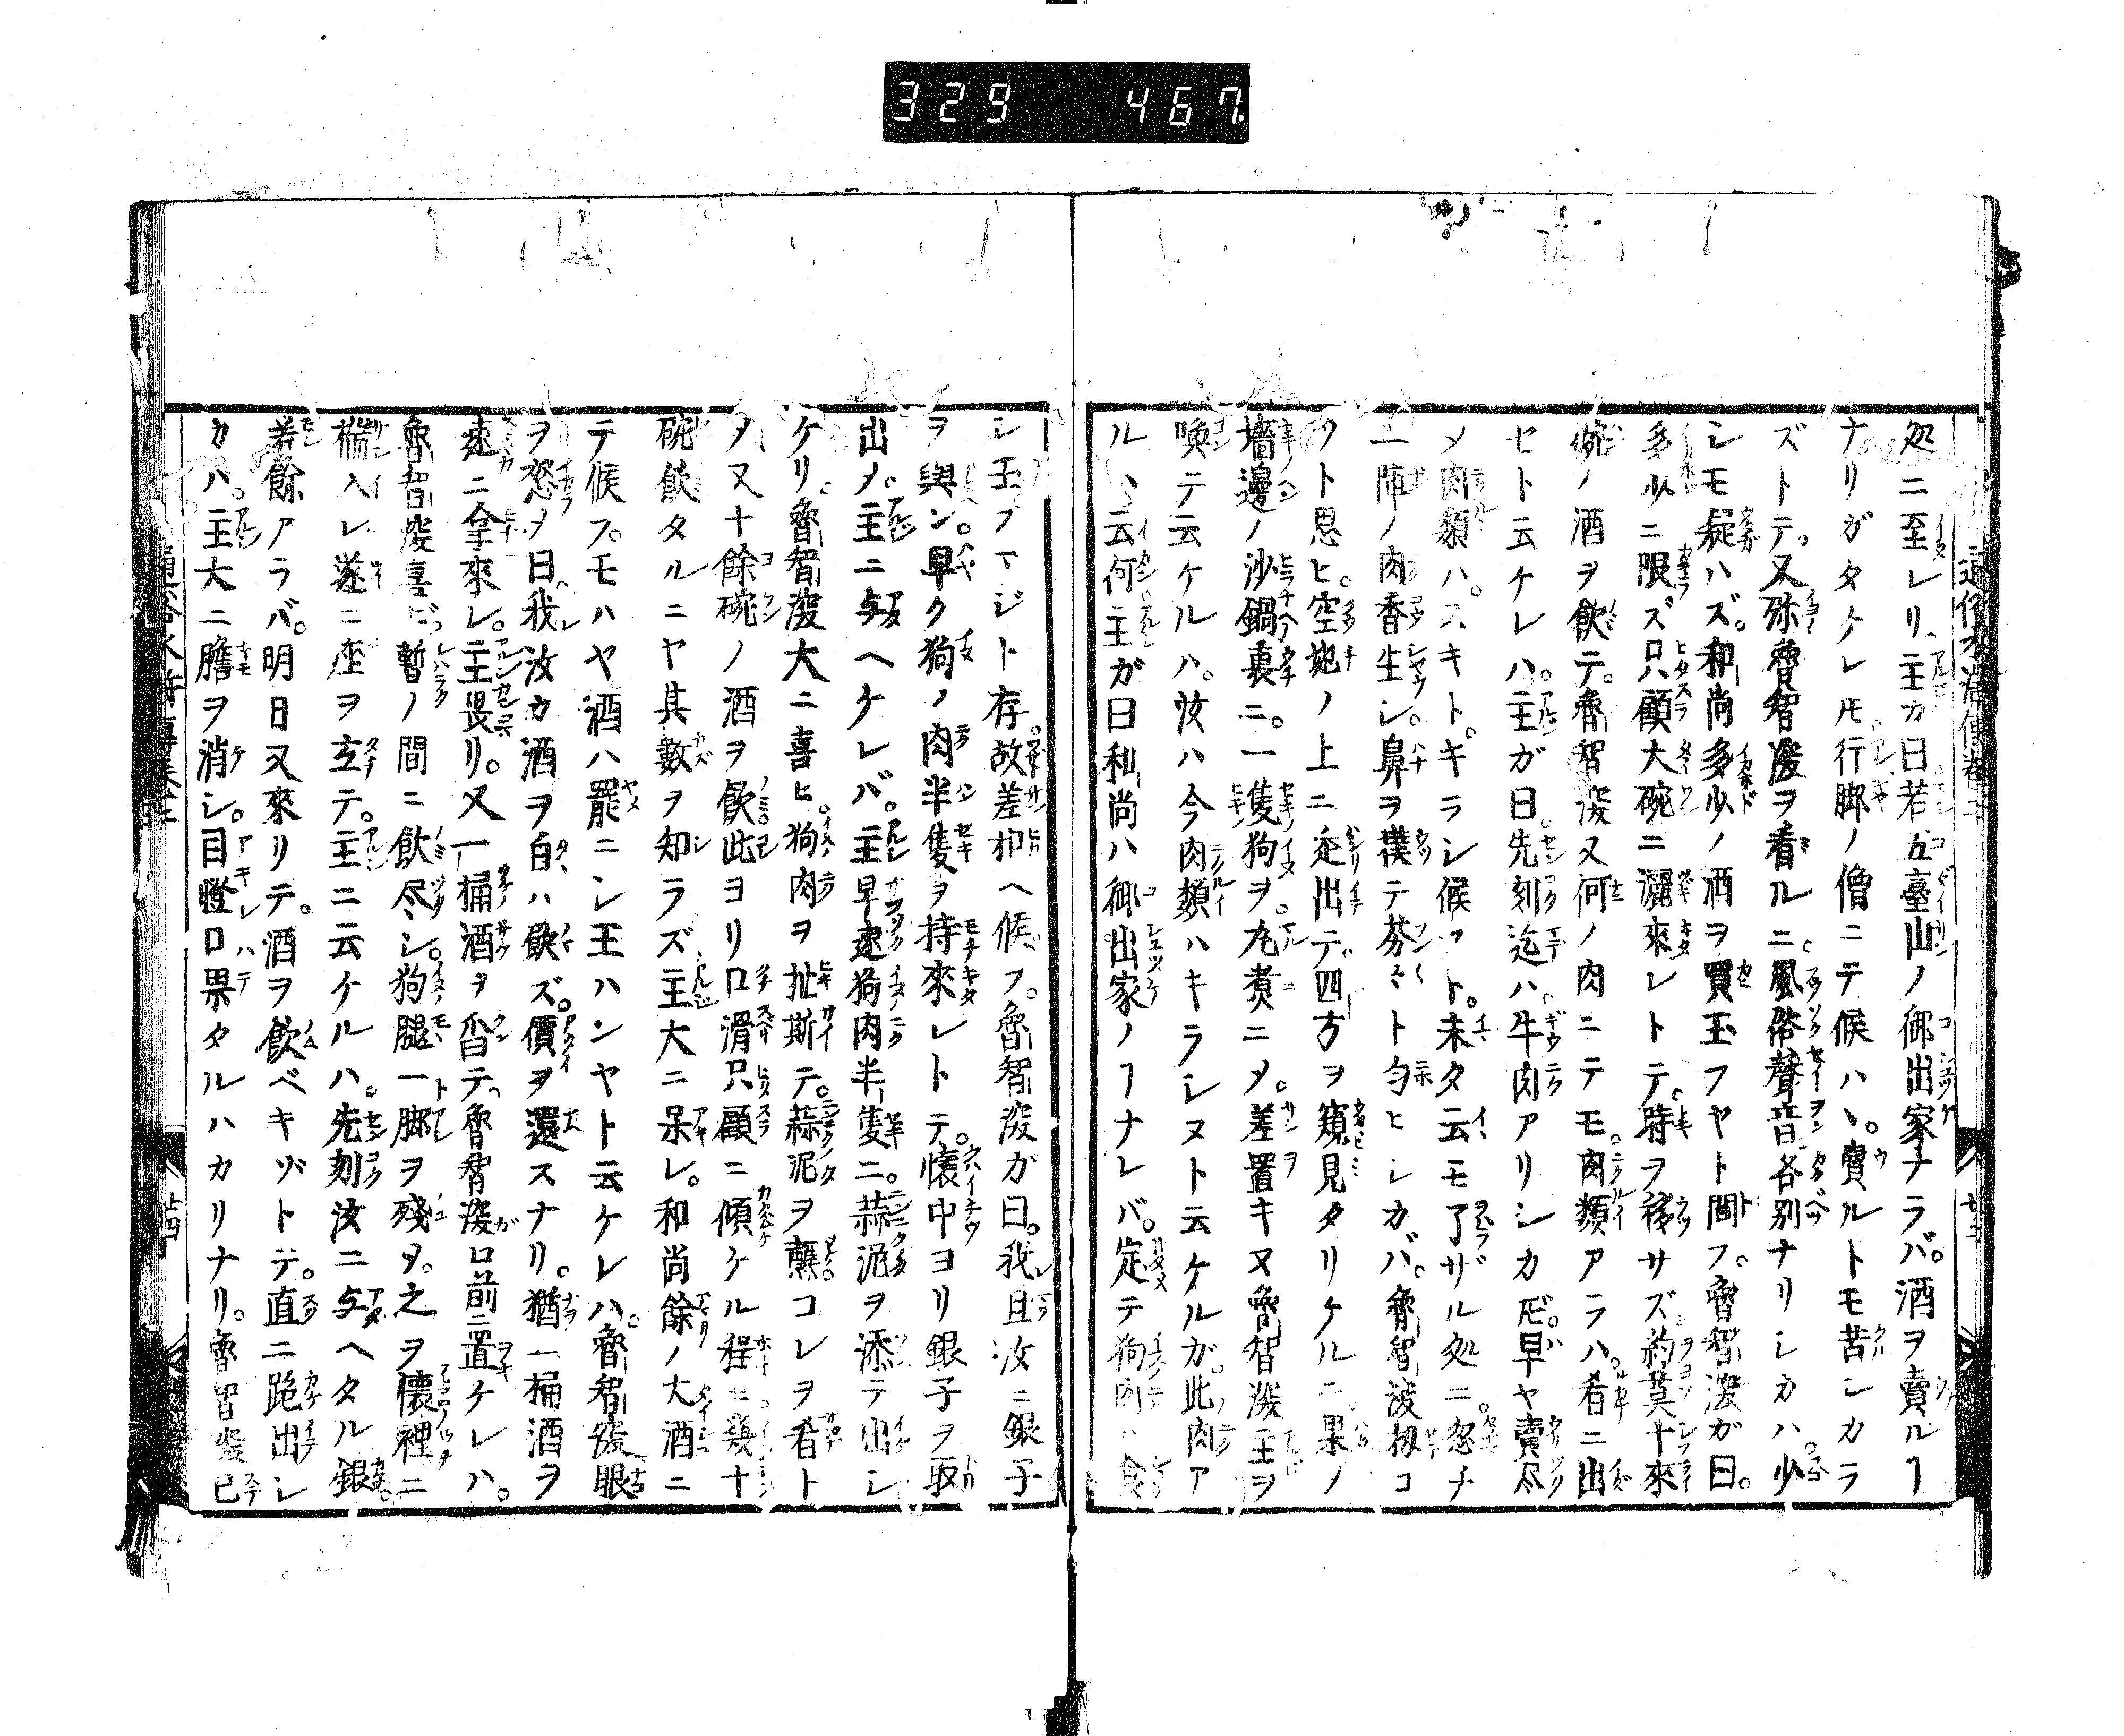 329 467
処ニ至レリ主カ曰若五臺山ノ御出家ナラバ。酒ヲ賣ルヿ
ナリガタケレ𪜈行脚ノ僧ニテ候ハヽ。賣ルトモ苦シカラ
ズトテ。又弥魯智深ヲ看ルニ風俗聲音各別ナリシカハ。少
シモ疑ハズ。和尚多少ノ酒ヲ買玉フヤト問フ。魯智深ガ曰。
多少ニ限ズ只顧大碗ニ灑來レトテ。時ヲ移サズ。約莫十來
碗ノ酒ヲ飲テ。魯智深又何ノ肉ニテモ。肉類アラハ。肴ニ出
セト云ケレハ。主ガ曰先刻迄ハ。牛肉アリシカ𪜈。早ヤ賣尽
メ肉類ハ。スキト。キラシ候フト。未タ云モ了ザル処ニ。忽チ
一陣ノ肉香生シ。鼻ヲ撲テ芬々ト匂ヒシカバ。魯智深扨コ
ソト思ヒ。空地ノ上ニ走出テ。四方ヲ窺見タリケルニ果ノ
墻邊ノ沙鍋裏ニ。一隻狗ヲ。丸煮ニメ。差置キ又魯智深主ヲ
喚テ云ケルハ。汝ハ今肉類ハキラシヌト云ケルガ。此肉ア
ルヽ云何主ガ曰和尚ハ御出家ノヿナレバ。定テ狗肉ハ食
シ玉フマジト存。故差扣ヘ候フ。魯智深ガ曰。我且汝ニ銀子
ヲ與ン。早ク狗ノ肉半隻ヲ持來レトテ。懐中ヨリ銀子ヲ取
出ノ。主ニ与ヘケレバ。主早速狗肉半隻ニ。蒜泥ヲ添テ出シ
ケリ。魯智深大ニ喜ヒ。狗肉ヲ扯斯テ。蒜泥ヲ蘸コレヲ肴ト
ノ又十餘碗ノ酒ヲ飲此ヨリ口滑只顧ニ傾ケル程ニ幾十
碗飲タルニヤ其數ヲ知ラズ主大ニ呆レ。和尚餘ノ大酒ニ
テ候フ。モハヤ酒ハ罷ニシ玉ハンヤト云ケレハ。魯智深眼
ヲ怒ヲ曰。我汝カ酒ヲ白ハ飲ズ。價ヲ還スナリ。猶一桶酒ヲ
速ニ拿來レ。主畏リ。又一桶酒ヲ舀テ。魯智深ガ口前ニ置ケレハ。
魯智深喜ビ暫ノ間ニ飲尽シ。狗腿一脚ヲ殘ヲ。之ヲ懐裡ニ
揣入レ遂ニ座ヲ立テ。主ニ云ケルハ。先刻汝ニ与ヘタル銀。
若餘アラバ。明日又來リテ。酒ヲ飲ベキゾトテ。直ニ跑出シ
カハ。主大ニ膽ヲ消シ。目瞪口果タルハカリナリ。魯智深已